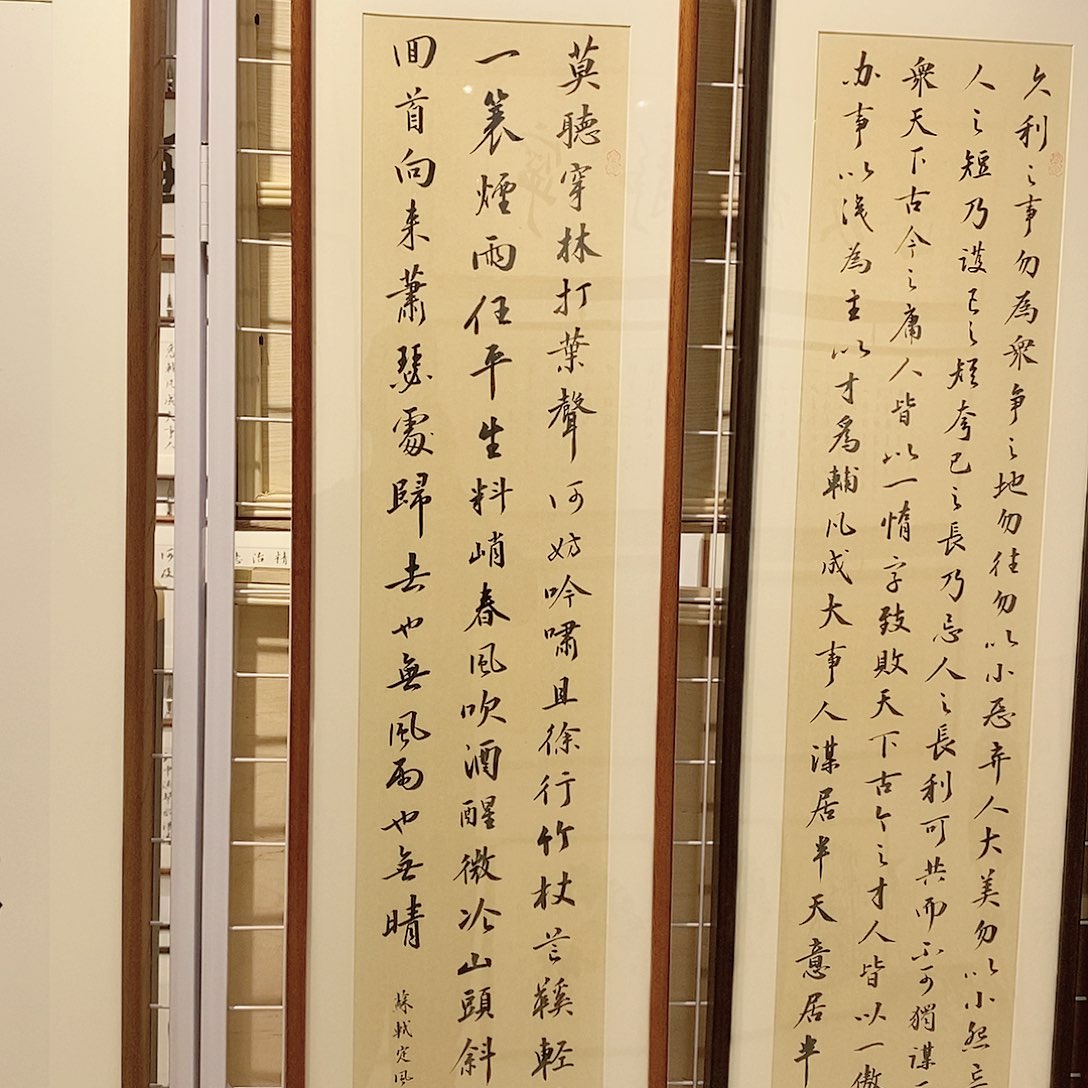 久利之事勿為衆爭之地勿往勿以小惡弃人大美勿以小怨忘
人之短乃護己之短夸己之長乃忌人之長利可共而不可獨謀
衆天下古今之庸人皆以一惰字致敗天下古今之才人皆以一傲
办事以浅為主以才爲輔凡成大事人謀居半天意居半
莫聽穿林打葉聲何妨吟嘯且徐行竹杖芒鞵輕
一蓑煙雨任平生料峭春風吹酒醒微冷山頭斜
回首向来蕭瑟處歸去也無風雨也無晴
蘇軾定風